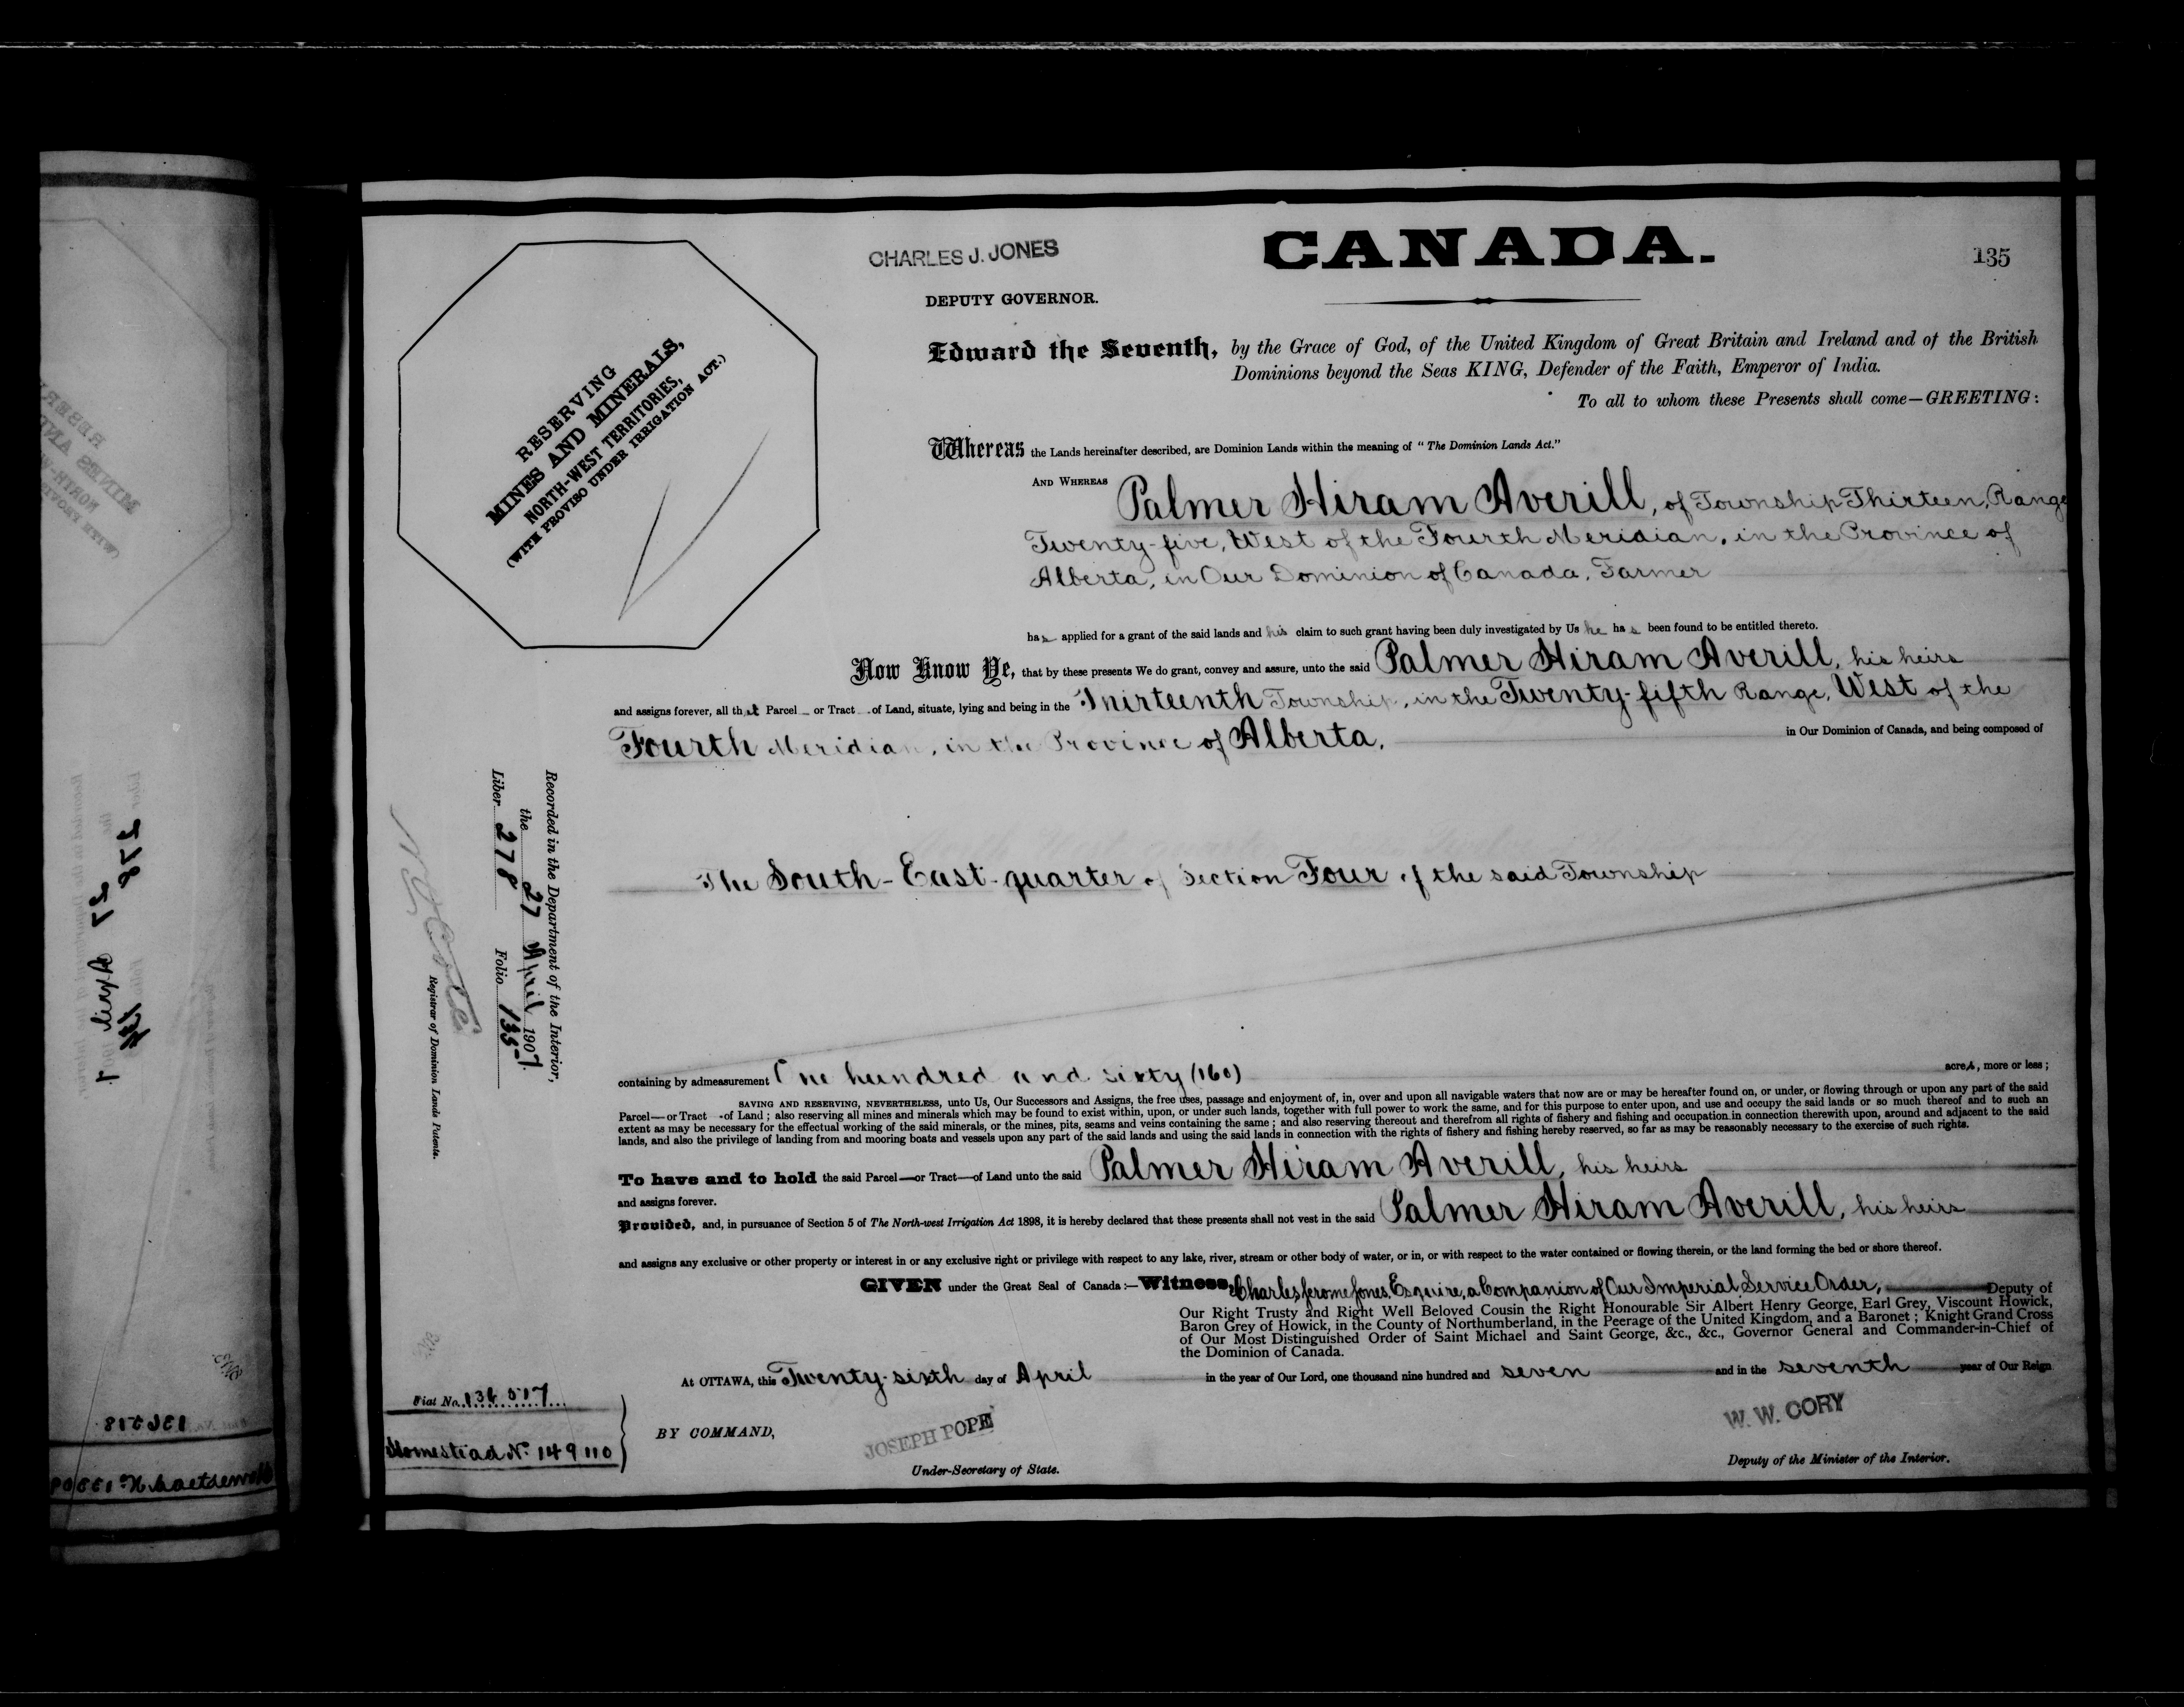 CHARLES J. JONES
CANADA.
135
DEPUTY GOVERNOR.
RESERVING
MINES AND MINERALS,
NORTH-WEST TERRITORIES,
(WITH PROVISO UNDER IRRIGATION ACT.)
Edward the Seventh, by the Grace of God, of the United Kingdom of Great Britain and Ireland and of the British
Dominions beyond the Seas KING, Defender of the Faith, Emperor of India.
To all to whom these Presents shall come—GREETING:
Whereas the Lands hereinafter described, are Dominion Lands within the meaning of "The Dominion Lands Act."
AND WHEREAS Palmer Hiram Averill, of Township Thirteen, Range
Twenty-five, West of the Fourth Meridian, in the Province of
Alberta, in Our Dominion of Canada, Farmer
has applied for a grant of the said lands and his claim to such grant having been duly investigated by Us he has been found to be entitled thereto.
Now Know Ye, that by these presents We do grant, convey and assure, unto the said Palmer Hiram Averill, his heirs
and assigns forever, all that Parcel or Tract of Land, situate, lying and being in the Thirteenth Township, in the Twenty-fifth Range, West of the
Fourth Meridian, in the Province of Alberta, in Our Dominion of Canada, and being composed of
The South-East-quarter of Section Four of the said Township
Recorded in the Department of the Interior,
the 27 April 1907.
Liber 278 Folio 135
Registrar of Dominion Lands Patents.
containing by admeasurement One hundred and sixty (160) acres, more or less;
SAVING AND RESERVING, NEVERTHELESS, unto Us, Our Successors and Assigns, the free uses, passage and enjoyment of, in, over and upon all navigable waters that now are or may be hereafter found on, or under, or flowing through or upon any part of the said
Parcel—or Tract—of Land; also reserving all mines and minerals which may be found to exist within, upon, or under such lands, together with full power to work the same, and for this purpose to enter upon, and use and occupy the said lands or so much thereof and to such an
extent as may be necessary for the effectual working of the said minerals, or the mines, pits, seams and veins containing the same; and also reserving thereout and therefrom all rights of fishery and fishing and occupation in connection therewith upon, around and adjacent to the said
lands, and also the privilege of landing from and mooring boats and vessels upon any part of the said lands and using the said lands in connection with the rights of fishery and fishing hereby reserved, so far as may be reasonably necessary to the exercise of such rights.
To have and to hold the said Parcel—or Tract—of Land unto the said Palmer Hiram Averill, his heirs
and assigns forever.
Provided, and, in pursuance of Section 5 of The North-west Irrigation Act 1898, it is hereby declared that these presents shall not vest in the said Palmer Hiram Averill, his heirs
and assigns any exclusive or other property or interest in or any exclusive right or privilege with respect to any lake, river, stream or other body of water, or in, or with respect to the water contained or flowing therein, or the land forming the bed or shore thereof.
GIVEN under the Great Seal of Canada:—Witness, Charles Jerome Jones, Esquire, a Companion of Our Imperial Service Order, Deputy of
Our Right Trusty and Right Well Beloved Cousin the Right Honourable Sir Albert Henry George, Earl Grey, Viscount Howick,
Baron Grey of Howick, in the County of Northumberland, in the Peerage of the United Kingdom, and a Baronet; Knight Grand Cross
of Our Most Distinguished Order of Saint Michael and Saint George, &c., &c., Governor General and Commander-in-Chief of
the Dominion of Canada.
At OTTAWA, this Twenty-sixth day of April in the year of Our Lord, one thousand nine hundred and seven and in the seventh year of Our Reign
Fiat No. 136517
Homestead No. 149110
BY COMMAND,
JOSEPH POPE
Under-Secretary of State.
W. W. CORY
Deputy of the Minister of the Interior.